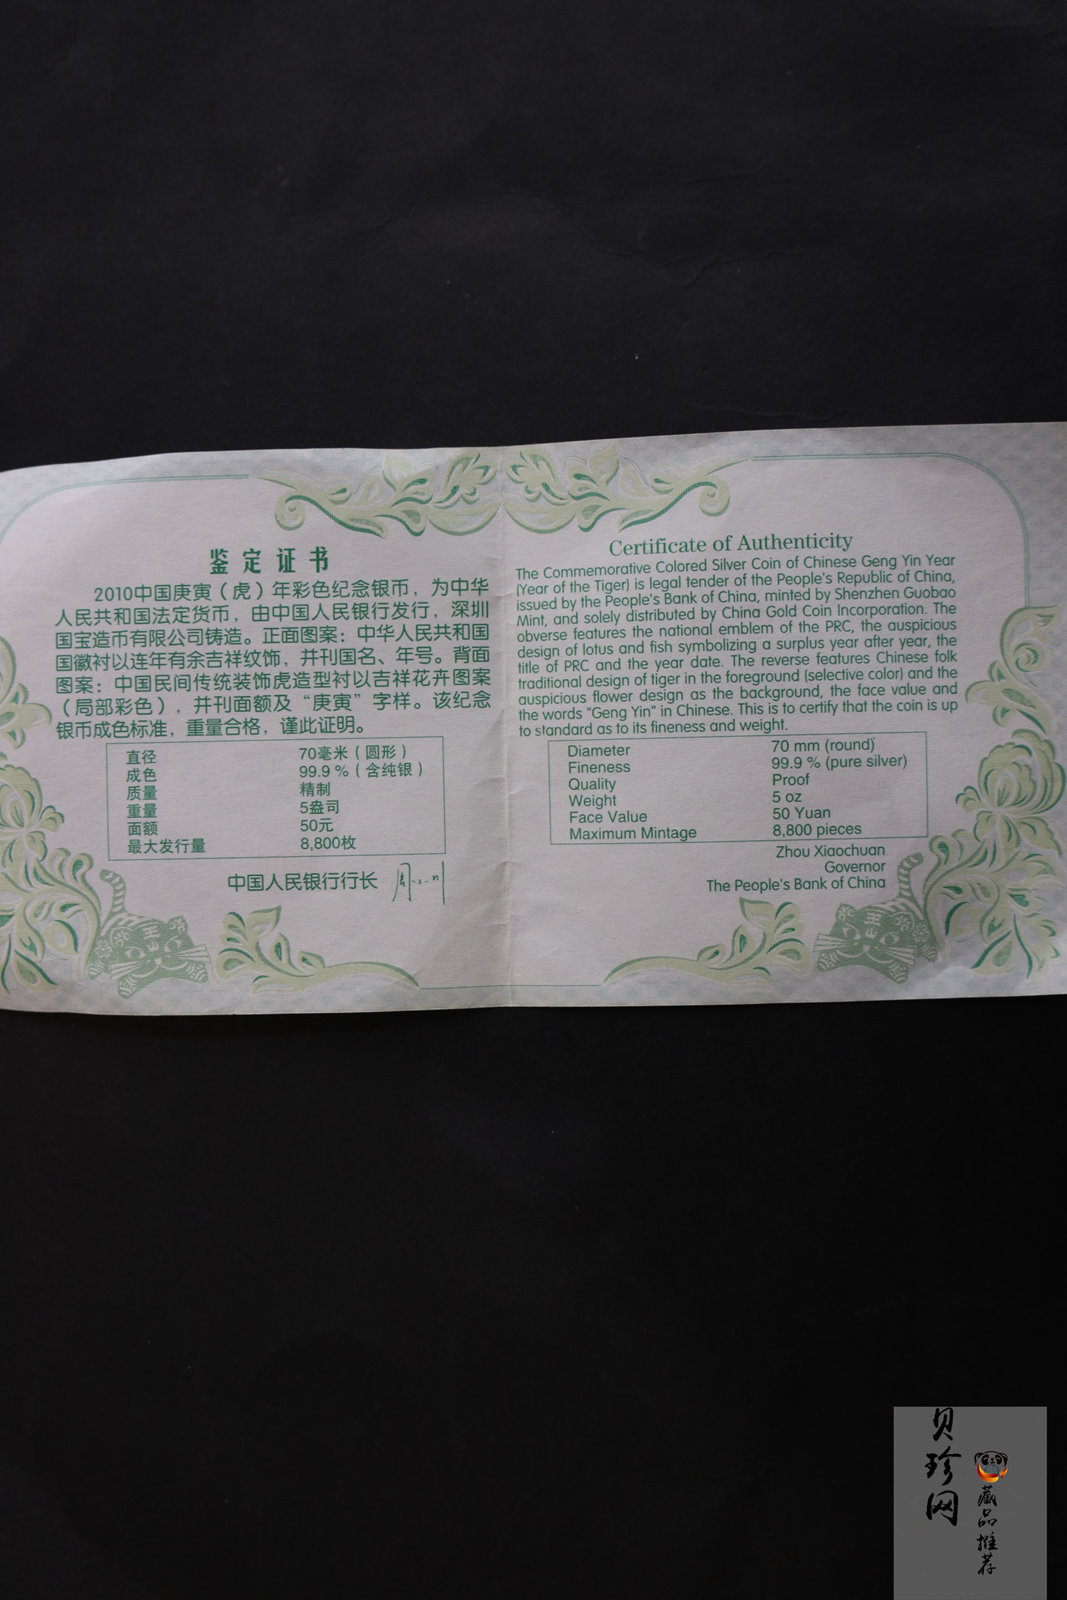 鉴定证书
2010中国庚寅（虎）年彩色纪念银币，为中华
人民共和国法定货币，由中国人民银行发行，深圳
国宝造币有限公司铸造。正面图案：中华人民共和国
国徽衬以连年有余吉祥纹饰，并刊国名、年号。背面
图案：中国民间传统装饰虎造型衬以吉祥花卉图案
（局部彩色），并刊面额及“庚寅”字样。该纪念
银币成色标准，重量合格，谨此证明。
直径 70毫米（圆形）
成色 99.9％（含纯银）
质量 精制
重量 5盎司
面额 50元
最大发行量 8,800枚
中国人民银行行长 周小川
Certificate of Authenticity
The Commemorative Colored Silver Coin of Chinese Geng Yin Year
(Year of the Tiger) is legal tender of the People's Republic of China,
issued by the People's Bank of China, minted by Shenzhen Guobao
Mint, and solely distributed by China Gold Coin Incorporation. The
obverse features the national emblem of the PRC, the auspicious
design of lotus and fish symbolizing a surplus year after year, the
title of PRC and the year date. The reverse features Chinese folk
traditional design of tiger in the foreground (selective color) and the
auspicious flower design as the background, the face value and
the words "Geng Yin" in Chinese. This is to certify that the coin is up
to standard as to its fineness and weight.
Diameter 70 mm (round)
Fineness 99.9 % (pure silver)
Quality Proof
Weight 5 oz
Face Value 50 Yuan
Maximum Mintage 8,800 pieces
Zhou Xiaochuan
Governor
The People's Bank of China
贝珍网
藏品推荐